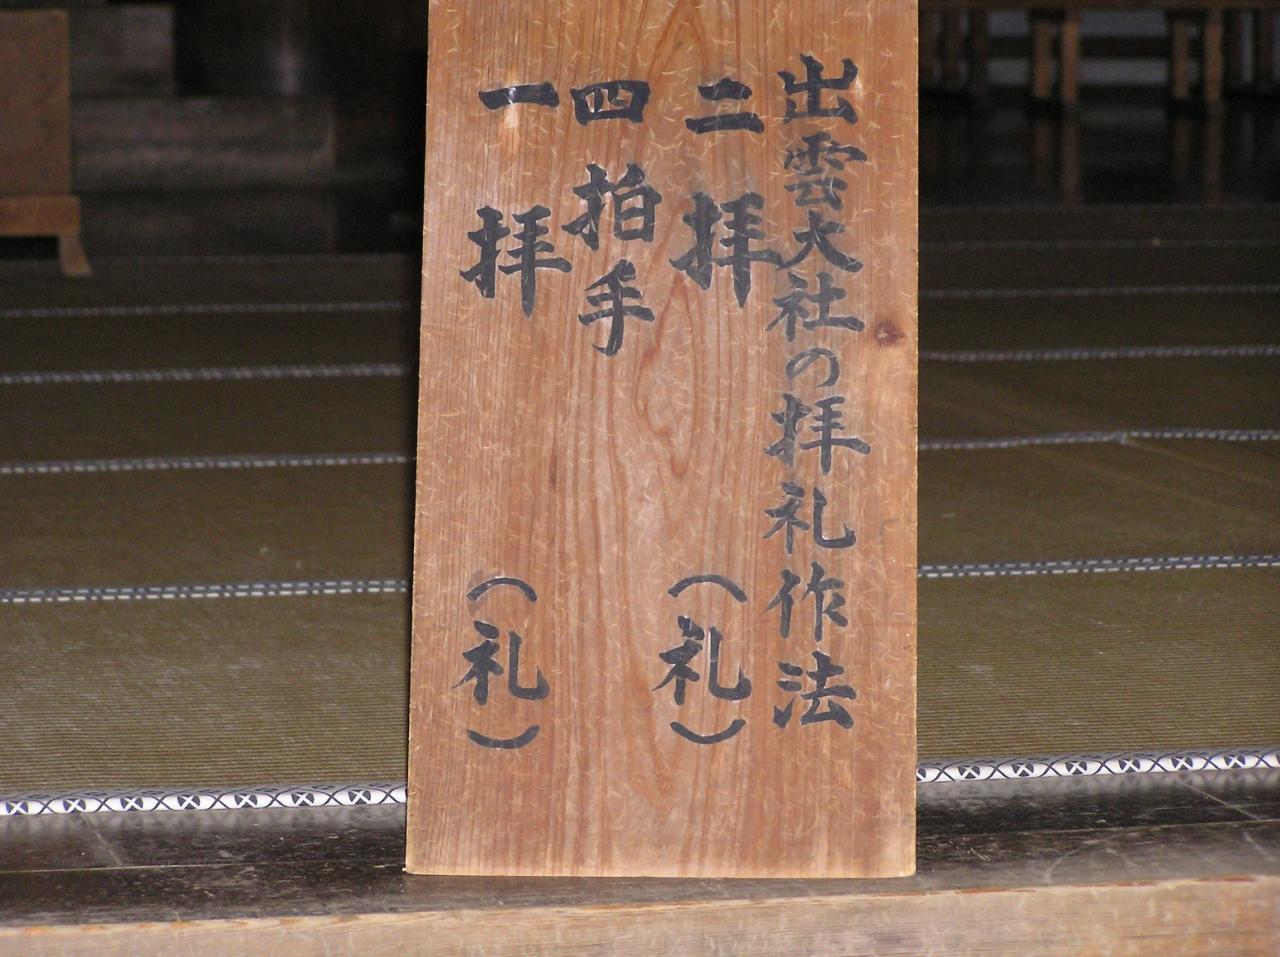 出雲大社の拝礼作法
二拝（礼）
四拍手
一拝（礼）